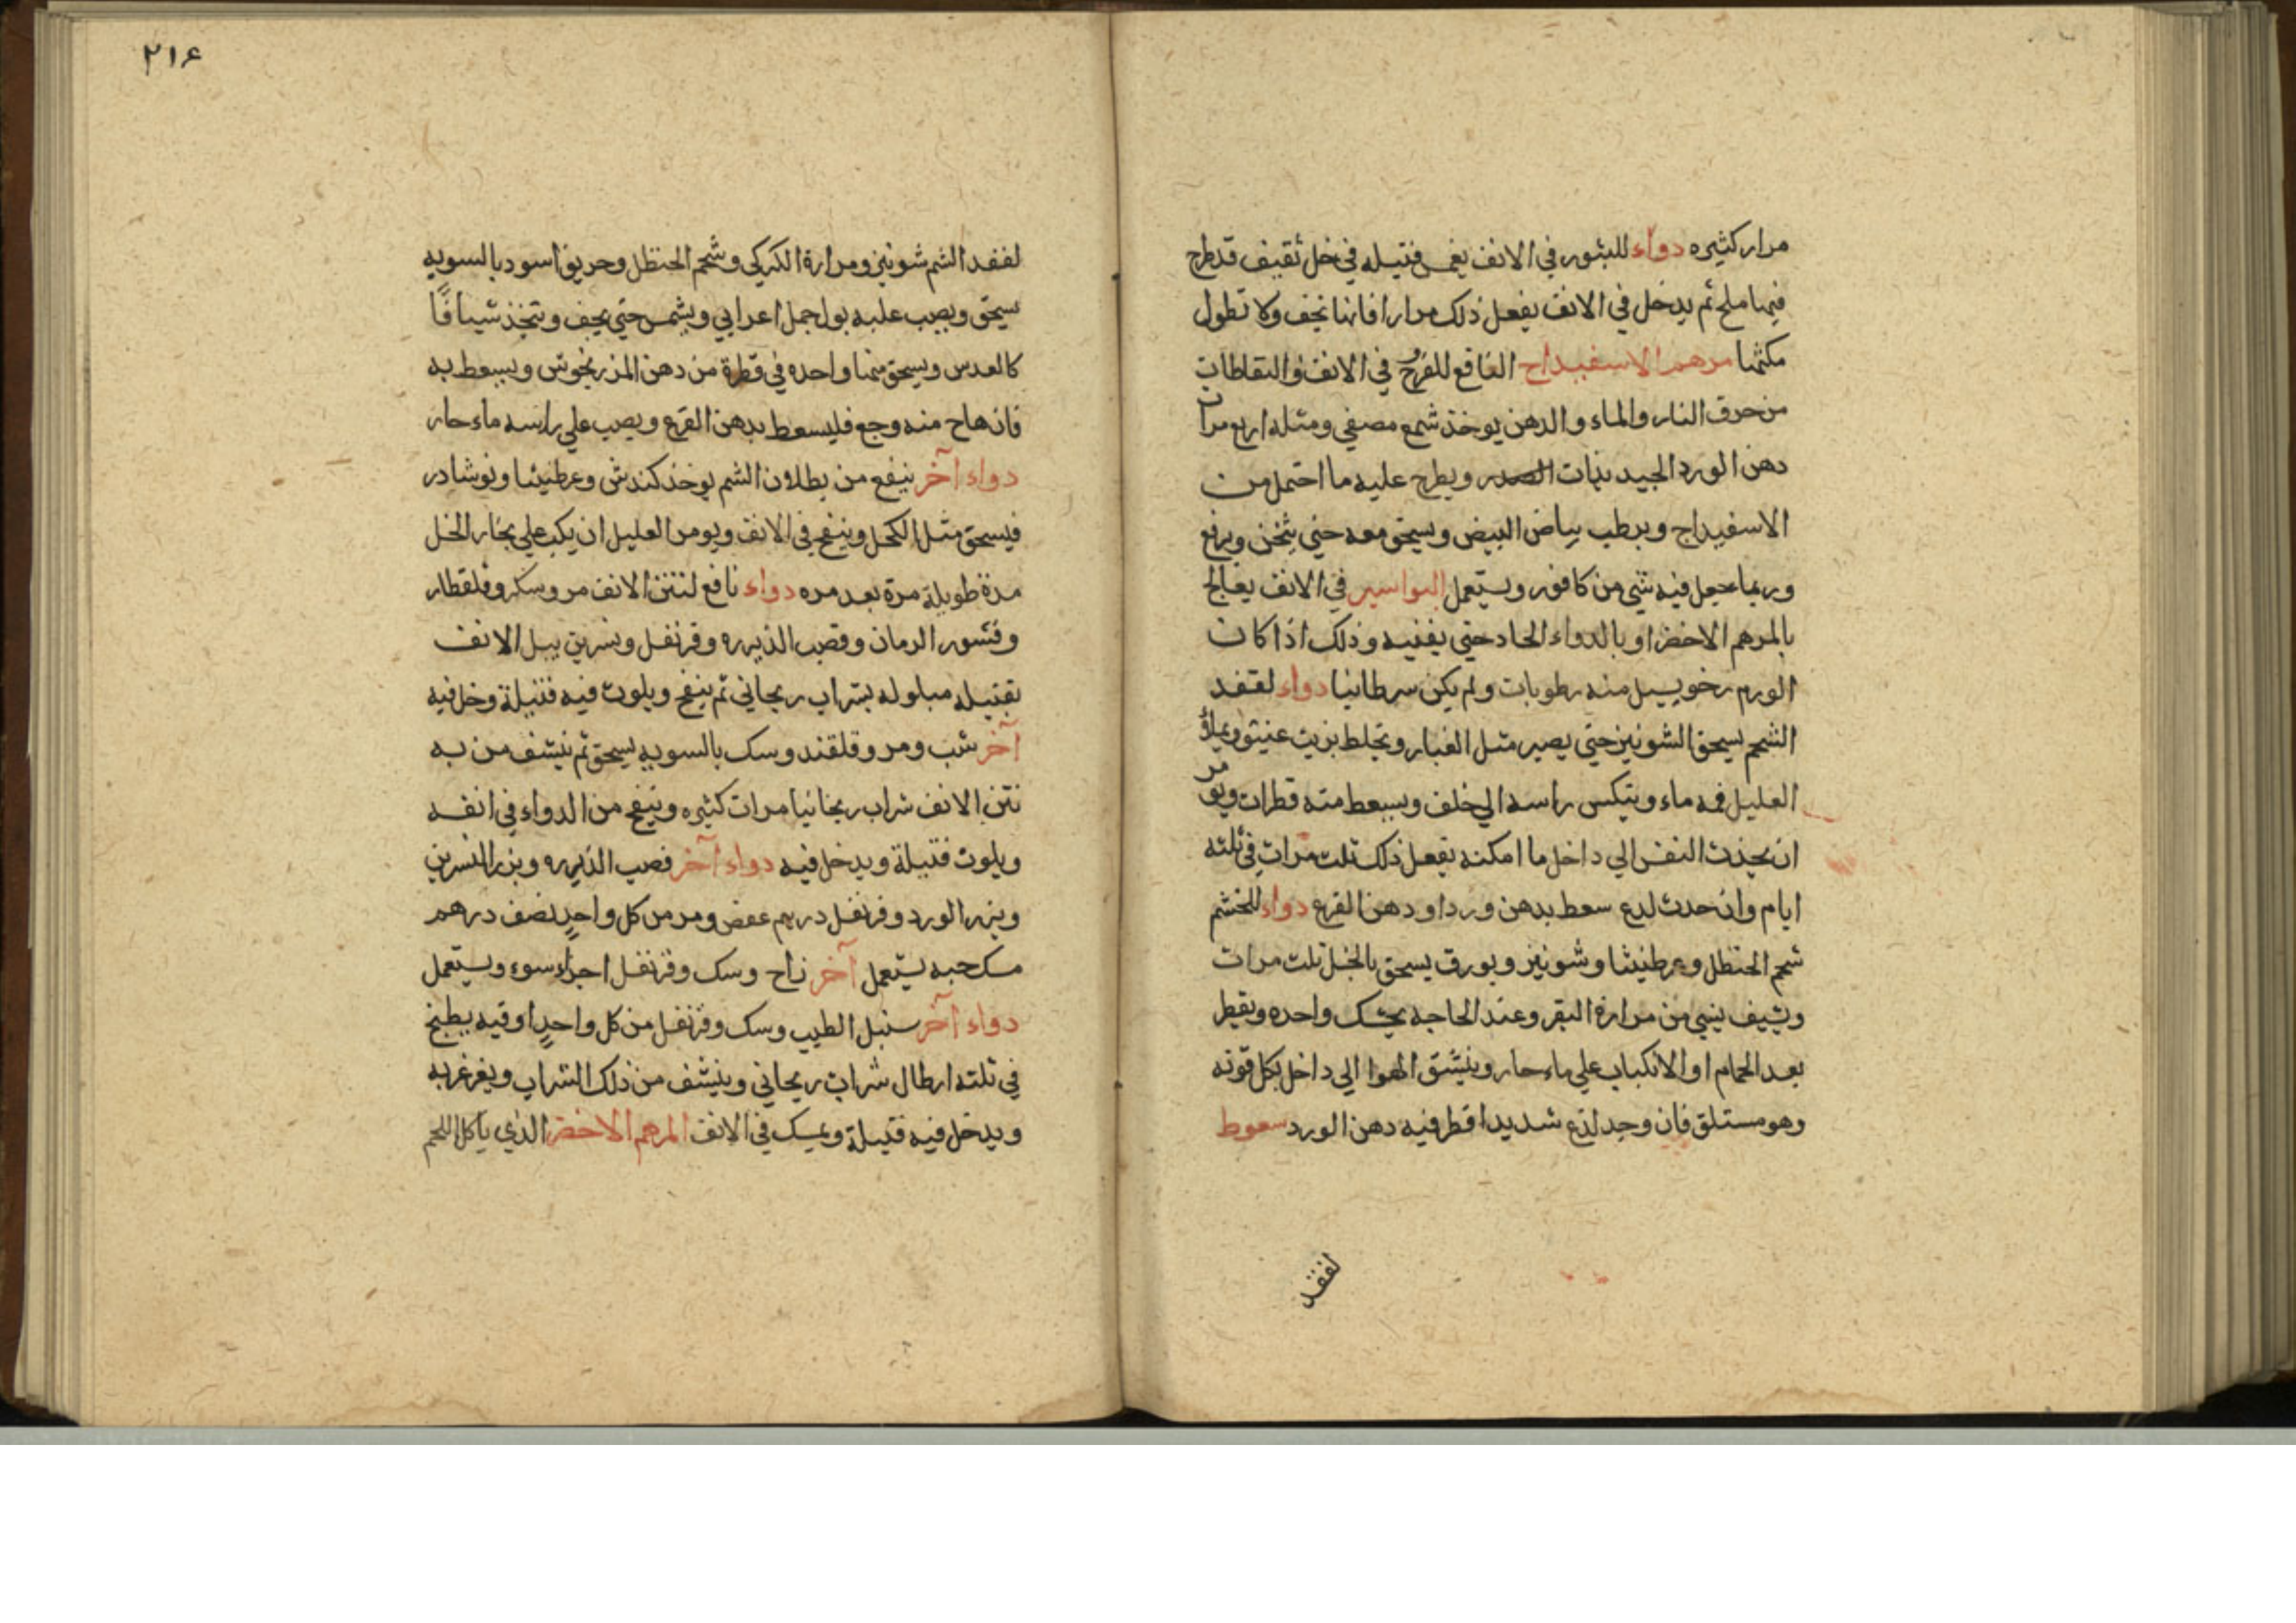 مرار كثيره دواء للبثور في الانف يغمس فتيله في خل ثقيف قد طرح
فيها ملح ثم يدخل في الانف يفعل ذلك مرارا فانها تجف ولا تطول
مكثها مرهم الاسفيداح النافع للقروح في الانف والنفاطات
من حرق النار والماء والدهن يوخذ شمع مصفي ومثله اربع مرات
دهن الورد الجيد يذاب ويطرح عليه ما احتمل من
الاسفيداج ويرطب ببياض البيض ويسحق معه حتي يثخن ويرفع
وربما جعل فيه شي من كافور ويستعمل البواسير في الانف يعالج
بالمرهم الاخضر او بالدواء الحاد حتي يفنيه وذلك اذا كان
الورم رخو يسيل منه رطوبات ولم يكن سرطانيا دواء لفقد
الشم يسحق الشونيز حتي يصير مثل الغبار ويخلط بزيت عتيق ويملؤ
العليل فمه ماء وينكس راسه الي خلف ويسعط منه قطرات ويومر
ان يجذب النفس الي داخل ما امكنه يفعل ذلك ثلث مرات في ثلثه
ايام وان حدث لدع سعط بدهن ورد او دهن القرع دواء للخشم
شحم الحنظل وعرطنيثا وشونيز وبورق يسحق بالخل ثلث مرات
ويشيف بشي من مرارة البقر وعند الحاجه يحك واحده ويقطر
بعد الحمام او الانكباب علي ماء حار وينشق الهوا الي داخل بكل قوته
وهو مستلق فان وجد لذع شديدا قطر فيه دهن الورد سعوط
لفقد
٢١٤
لفقد الشم شونيز ومرارة الكركي وشحم الحنظل وخربق اسود بالسويه
يسحق ويصب عليه بول جمل اعرابي ويشمس حتي يجف ويتخذ شيافًا
كالعدس ويسحق منها واحده في قطرة من دهن المرزنجوش ويسعط به
فان هاج منه وجع فليسعط بدهن القرع ويصب علي راسه ماء حار
دواء آخر ينفع من بطلان الشم يوخذ كندش وعرطنيثا ونوشادر
فيسحق مثل الكحل وينفخ في الانف ويومر العليل ان يكب علي بخار الخل
مدة طويلة مرة بعد مره دواء نافع لنتن الانف مر وسك وقلقطار
وقشور الرمان وقصب الذريره وقرنفل ونسرين يبل الانف
بفتيله مبلوله بشراب ريحاني ثم ينفخ ويلوث فيه فتيلة وخل فيه
آخر شب ومر وقلقند وسك بالسويه يسحق ثم ينشف من به
نتن الانف شراب ريحانيا مرات كثيره وينفخ من الدواء في انفه
ويلوث فتيلة ويدخل فيه دواء آخر قصب الذريره وبزر النسرين
وبزر الورد وقرنفل درهم عفص ومر من كل واحدٍ نصف درهم
مسك حبه يستعمل آخر زاج وسك وقرنفل اجزاء سوء ويستعمل
دواء آخر سنبل الطيب وسك وقرنفل من كل واحدٍ اوقيه يطبخ
في ثلثه ارطال شراب ريحاني وينشف من ذلك الشراب ويغرغر به
ويدخل فيه فتيلة ويمسك في الانف المرهم الاخضر الذي ياكل اللحم